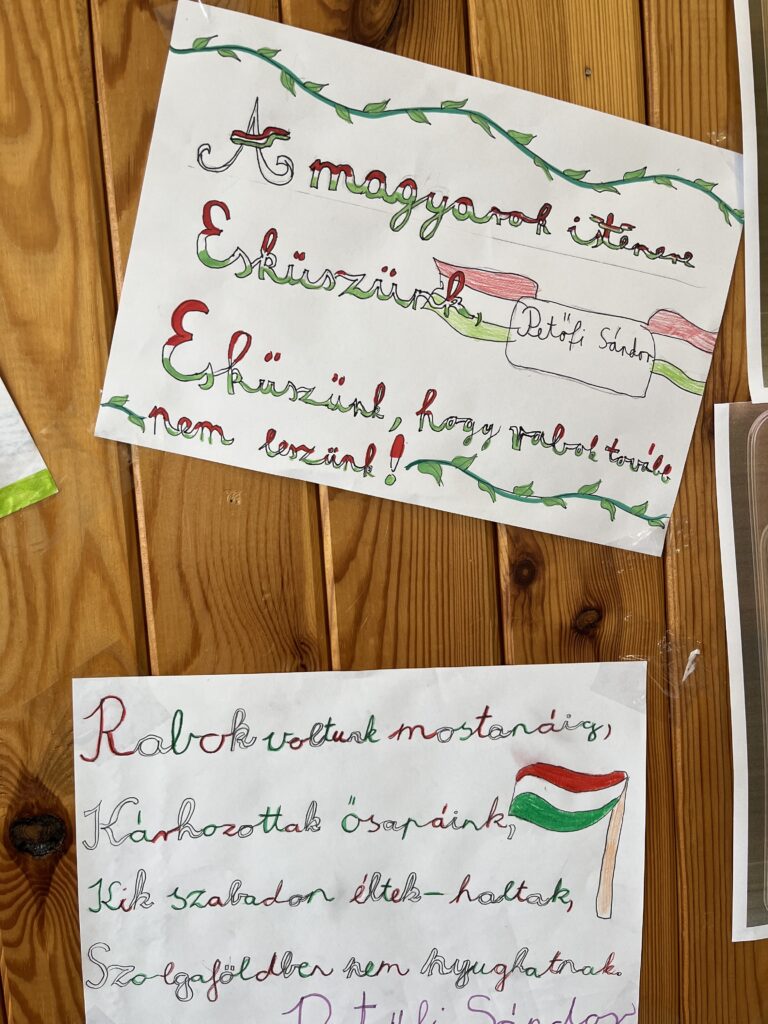 A magyarok istenére
Esküszünk,
Petőfi Sándor
Esküszünk, hogy rabok tovább
nem leszünk!
Rabok voltunk mostanáig,
Kárhozottak ősapáink,
Kik szabadon éltek-haltak,
Szolgaföldben nem nyughatnak.
Petőfi Sándor